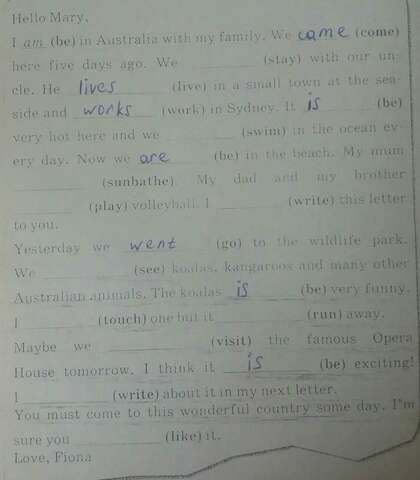 Hello Mary,
I am (be) in Australia with my family. We came (come)
here five days ago. We ________ (stay) with our un-
cle. He lives (live) in a small town at the sea-
side and works (work) in Sydney. It is (be)
very hot here and we ________ (swim) in the ocean ev-
ery day. Now we are (be) in the beach. My mum
________ (sunbathe). My dad and my brother
________ (play) volleyball. I ________ (write) this letter
to you.
Yesterday we went (go) to the wildlife park.
We ________ (see) koalas, kangaroos and many other
Australian animals. The koalas is (be) very funny.
I ________ (touch) one but it ________ (run) away.
Maybe we ________ (visit) the famous Opera
House tomorrow. I think it is (be) exciting!
I ________ (write) about it in my next letter.
You must come to this wonderful country some day. I'm
sure you ________ (like) it.
Love, Fiona